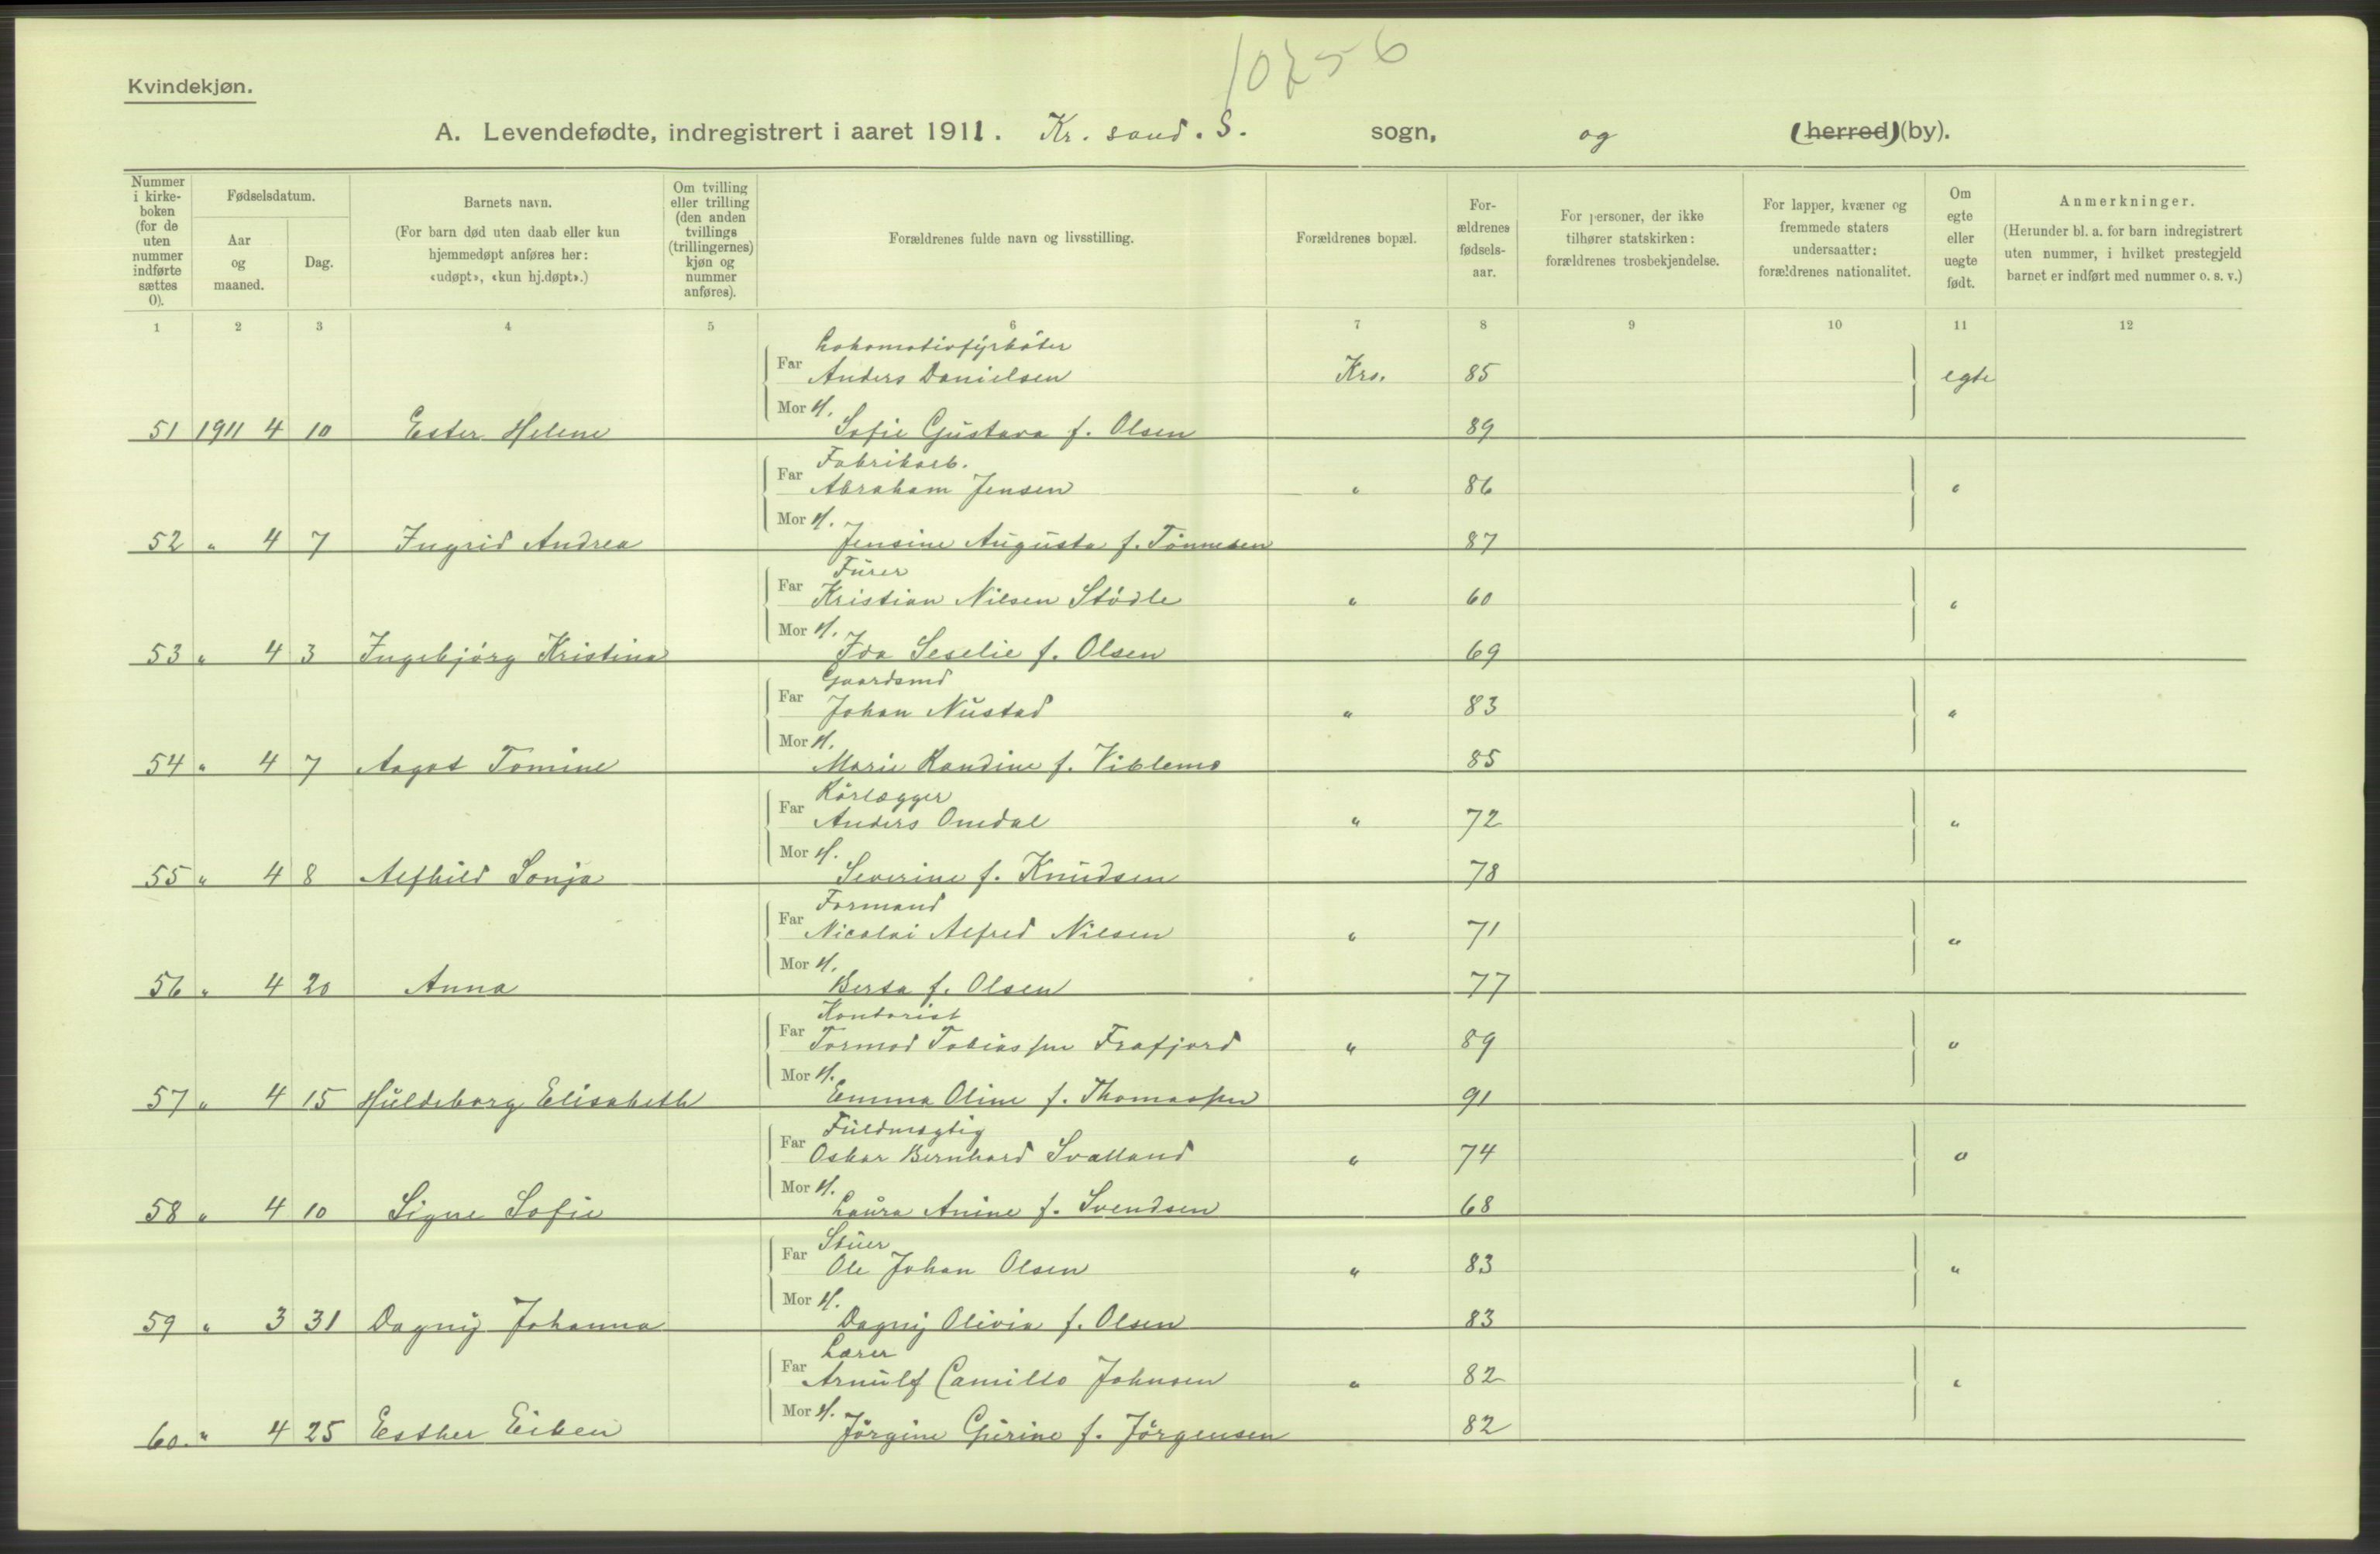 10256
Kvindekjøn.
A. Levendefødte, indregistrert i aaret 1911. Kr. sand. S. sogn, og (herred) (by).
Nummer i kirkeboken (for de uten nummer indførte sættes 0).
Fødselsdatum.
Aar og maaned.
Dag.
Barnets navn.
(For barn død uten daab eller kun hjemmedøpt anføres her: «udøpt», «kun hj.døpt».)
Om tvilling eller trilling (den anden tvillings (trillingernes) kjøn og nummer anføres).
Forældrenes fulde navn og livsstilling.
Forældrenes bopæl.
Forældrenes fødselsaar.
For personer, der ikke tilhører statskirken: forældrenes trosbekjendelse.
For lapper, kvæner og fremmede staters undersaatter: forældrenes nationalitet.
Om egte eller uegte født.
Anmerkninger.
(Herunder bl. a. for barn indregistrert uten nummer, i hvilket prestegjeld barnet er indført med nummer o. s. v.)
1 2 3 4 5 6 7 8 9 10 11 12
Lokomotivfyrbøter
Far Anders Danielsen Krs. 85 egte
Mor H.
51 1911 4 10 Ester Helene Sofie Gustava f. Olsen 89
Fabrikarb.
Far Abraham Jensen " 86 "
Mor H.
52 " 4 7 Ingrid Andrea Jensine Augusta f. Tønnesen 87
Fører
Far Kristian Nilsen Stødle " 60 "
Mor H.
53 " 4 3 Ingebjørg Kristina Ida Seselie f. Olsen 69
Gaardsmd
Far Johan Nustad " 83 "
Mor H.
54 " 4 7 Aagot Tomine Marie Randine f. Viblemo 85
Rørlægger
Far Anders Omdal " 72 "
Mor H.
55 " 4 8 Alfhild Sonja Severine f. Knudsen 78
Formand
Far Nicolai Alfred Nilsen " 71 "
Mor H.
56 " 4 20 Anna Berta f. Olsen 77
Kontorist
Far Tormod Tobiassen Frafjord " 89 "
Mor H.
57 " 4 15 Huldeborg Elisabeth Emma Oline f. Thomassen 91
Fuldmægtig
Far Oskar Bernhard Svaland " 74 "
Mor H.
58 " 4 10 Signe Sofie Laura Anine f. Svendsen 68
Stuer
Far Ole Johan Olsen " 83 "
Mor H.
59 " 3 31 Dagny Johanna Dagny Olivia f. Olsen 83
Lærer
Far Arnulf Camillo Johnsen " 82 "
Mor H.
60. " 4 25 Esther Eiken Jørgine Gurine f. Jørgensen 82